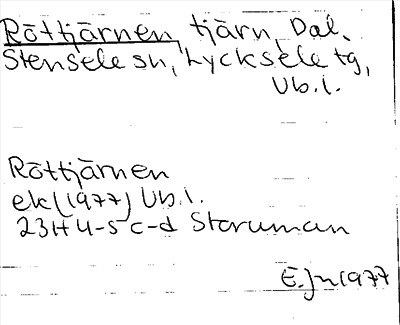 Röttjärnen, tjärn, Dal.
Stensele sn, Lycksele tg,
Vb.l.
Röttjärnen
ek (1977) Vb.l.
23H 4-5 c-d Storuman
E.Jn 1977